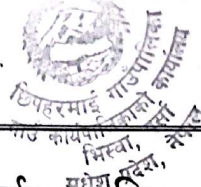 छिपहरमाई गाउँपालिका
गाउँ कार्यपालिकाको कार्यालय
भिस्वा,
मधेश प्रदेश, नेपाल